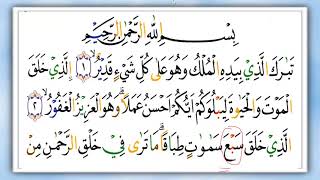 بِسْمِ اللهِ الرَّحْمٰنِ الرَّحِيْمِ
تَبٰرَكَ الَّذِيْ بِيَدِهِ الْمُلْكُ وَهُوَ عَلٰى كُلِّ شَيْءٍ قَدِيْرٌ ۙ ١ الَّذِيْ خَلَقَ
الْمَوْتَ وَالْحَيٰوةَ لِيَبْلُوَكُمْ اَيُّكُمْ اَحْسَنُ عَمَلًا ۗ وَهُوَ الْعَزِيْزُ الْغَفُوْرُ ۙ ٢
الَّذِيْ خَلَقَ سَبْعَ سَمٰوٰتٍ طِبَاقًا ۗ مَا تَرٰى فِيْ خَلْقِ الرَّحْمٰنِ مِنْ